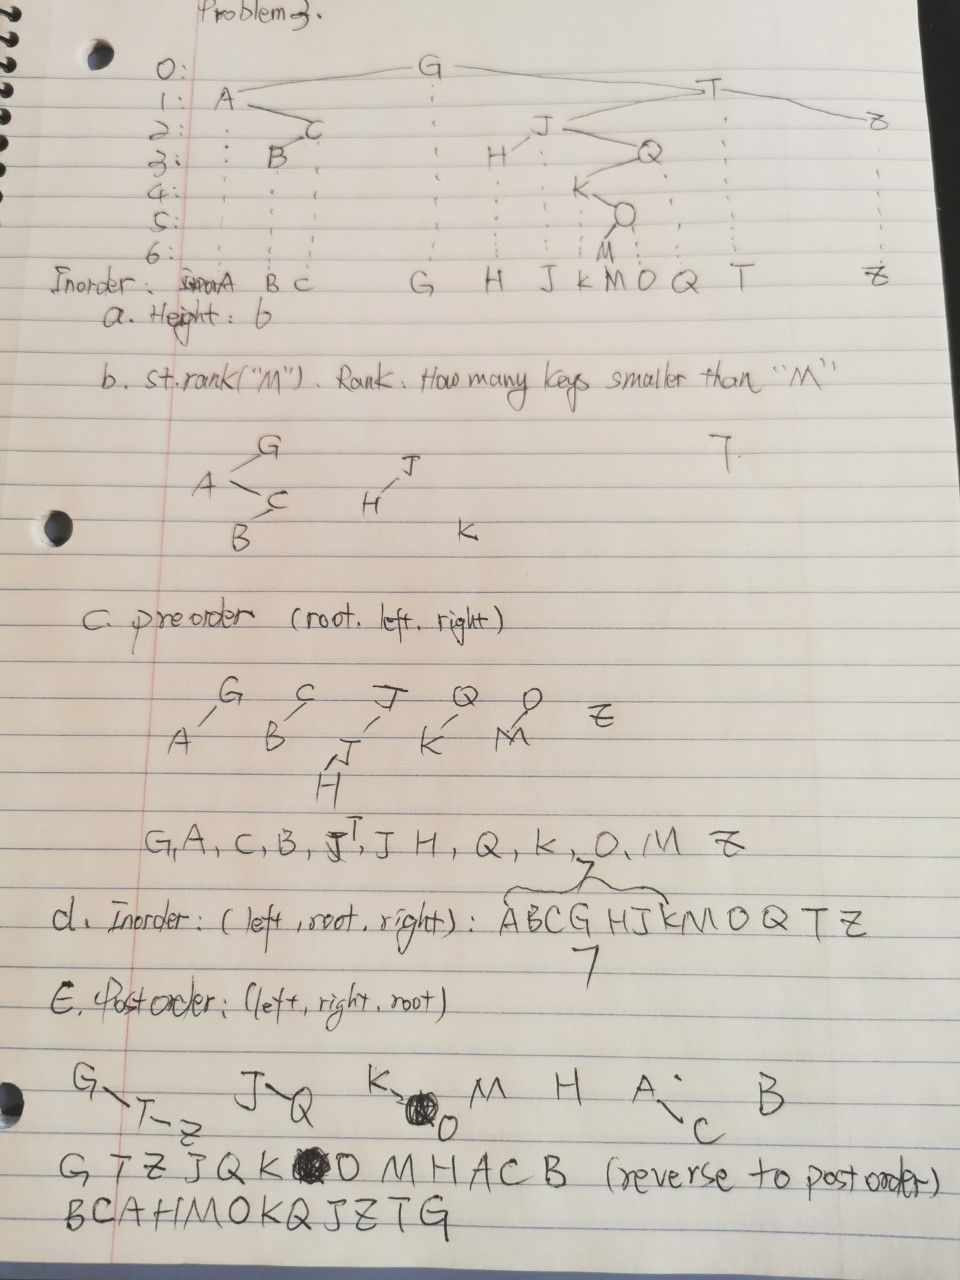 Problem 3.
0: G
1: A T
2: C J Z
3: B H Q
4: K
5: O
6: M
Inorder: A B C G H J K M O Q T Z
a. Height: 6
b. st.rank("M"). Rank. How many keys smaller than "M"
G J 7.
A C H
B K
C. preorder (root. left. right)
G C J Q O Z
A B J K M
H
G, A, C, B, J T, J H, Q, K, O, M Z
7
d. Inorder: (left, root, right): ABCG HJKMOQTZ
7
E. Postorder: (left, right, root)
G J K M H A B
T Z Q O C
G T Z J Q K O M H A C B (reverse to postorder)
BCAHMOKQJZTG